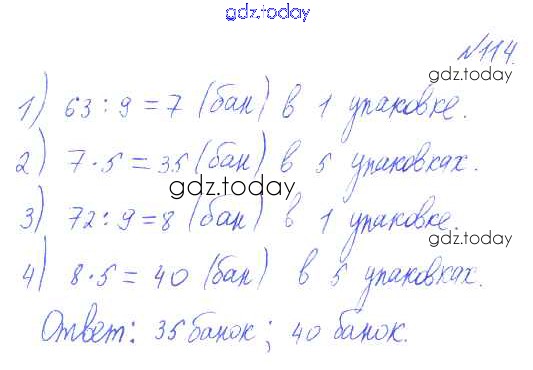 gdz.today
№114.
gdz.today
1) 63 : 9 = 7 (бан) в 1 упаковке.
2) 7 · 5 = 35 (бан) в 5 упаковках.
gdz.today
3) 72 : 9 = 8 (бан) в 1 упаковке.
gdz.today
4) 8 · 5 = 40 (бан) в 5 упаковках.
Ответ: 35 банок; 40 банок.